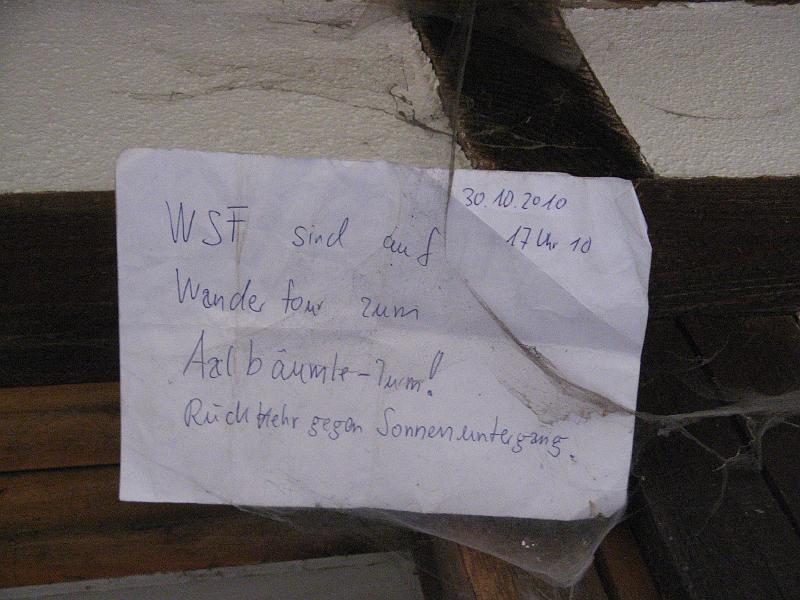 30.10.2010
WSF sind auf 17 Uhr 10
Wander tour zum
Aalbäumle-Turm!
Rückkehr gegen Sonnenuntergang.